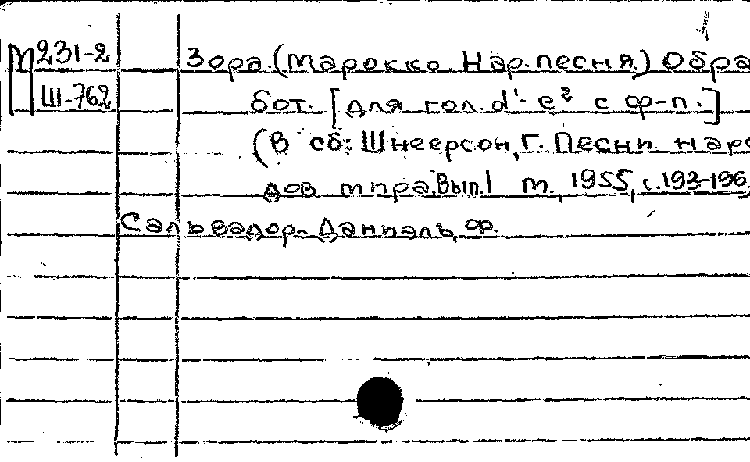 М231-2 Зора. (Марокко Нар. песня.) Обра
Ш-762 бот. [для гол. d¹- e² с ф-п.]
(В сб: Шнеерсон, Г. Песни наро
дов мира. Вып. 1 М., 1955, с. 193-196,
Сальвадор-Даниэль, Ф.